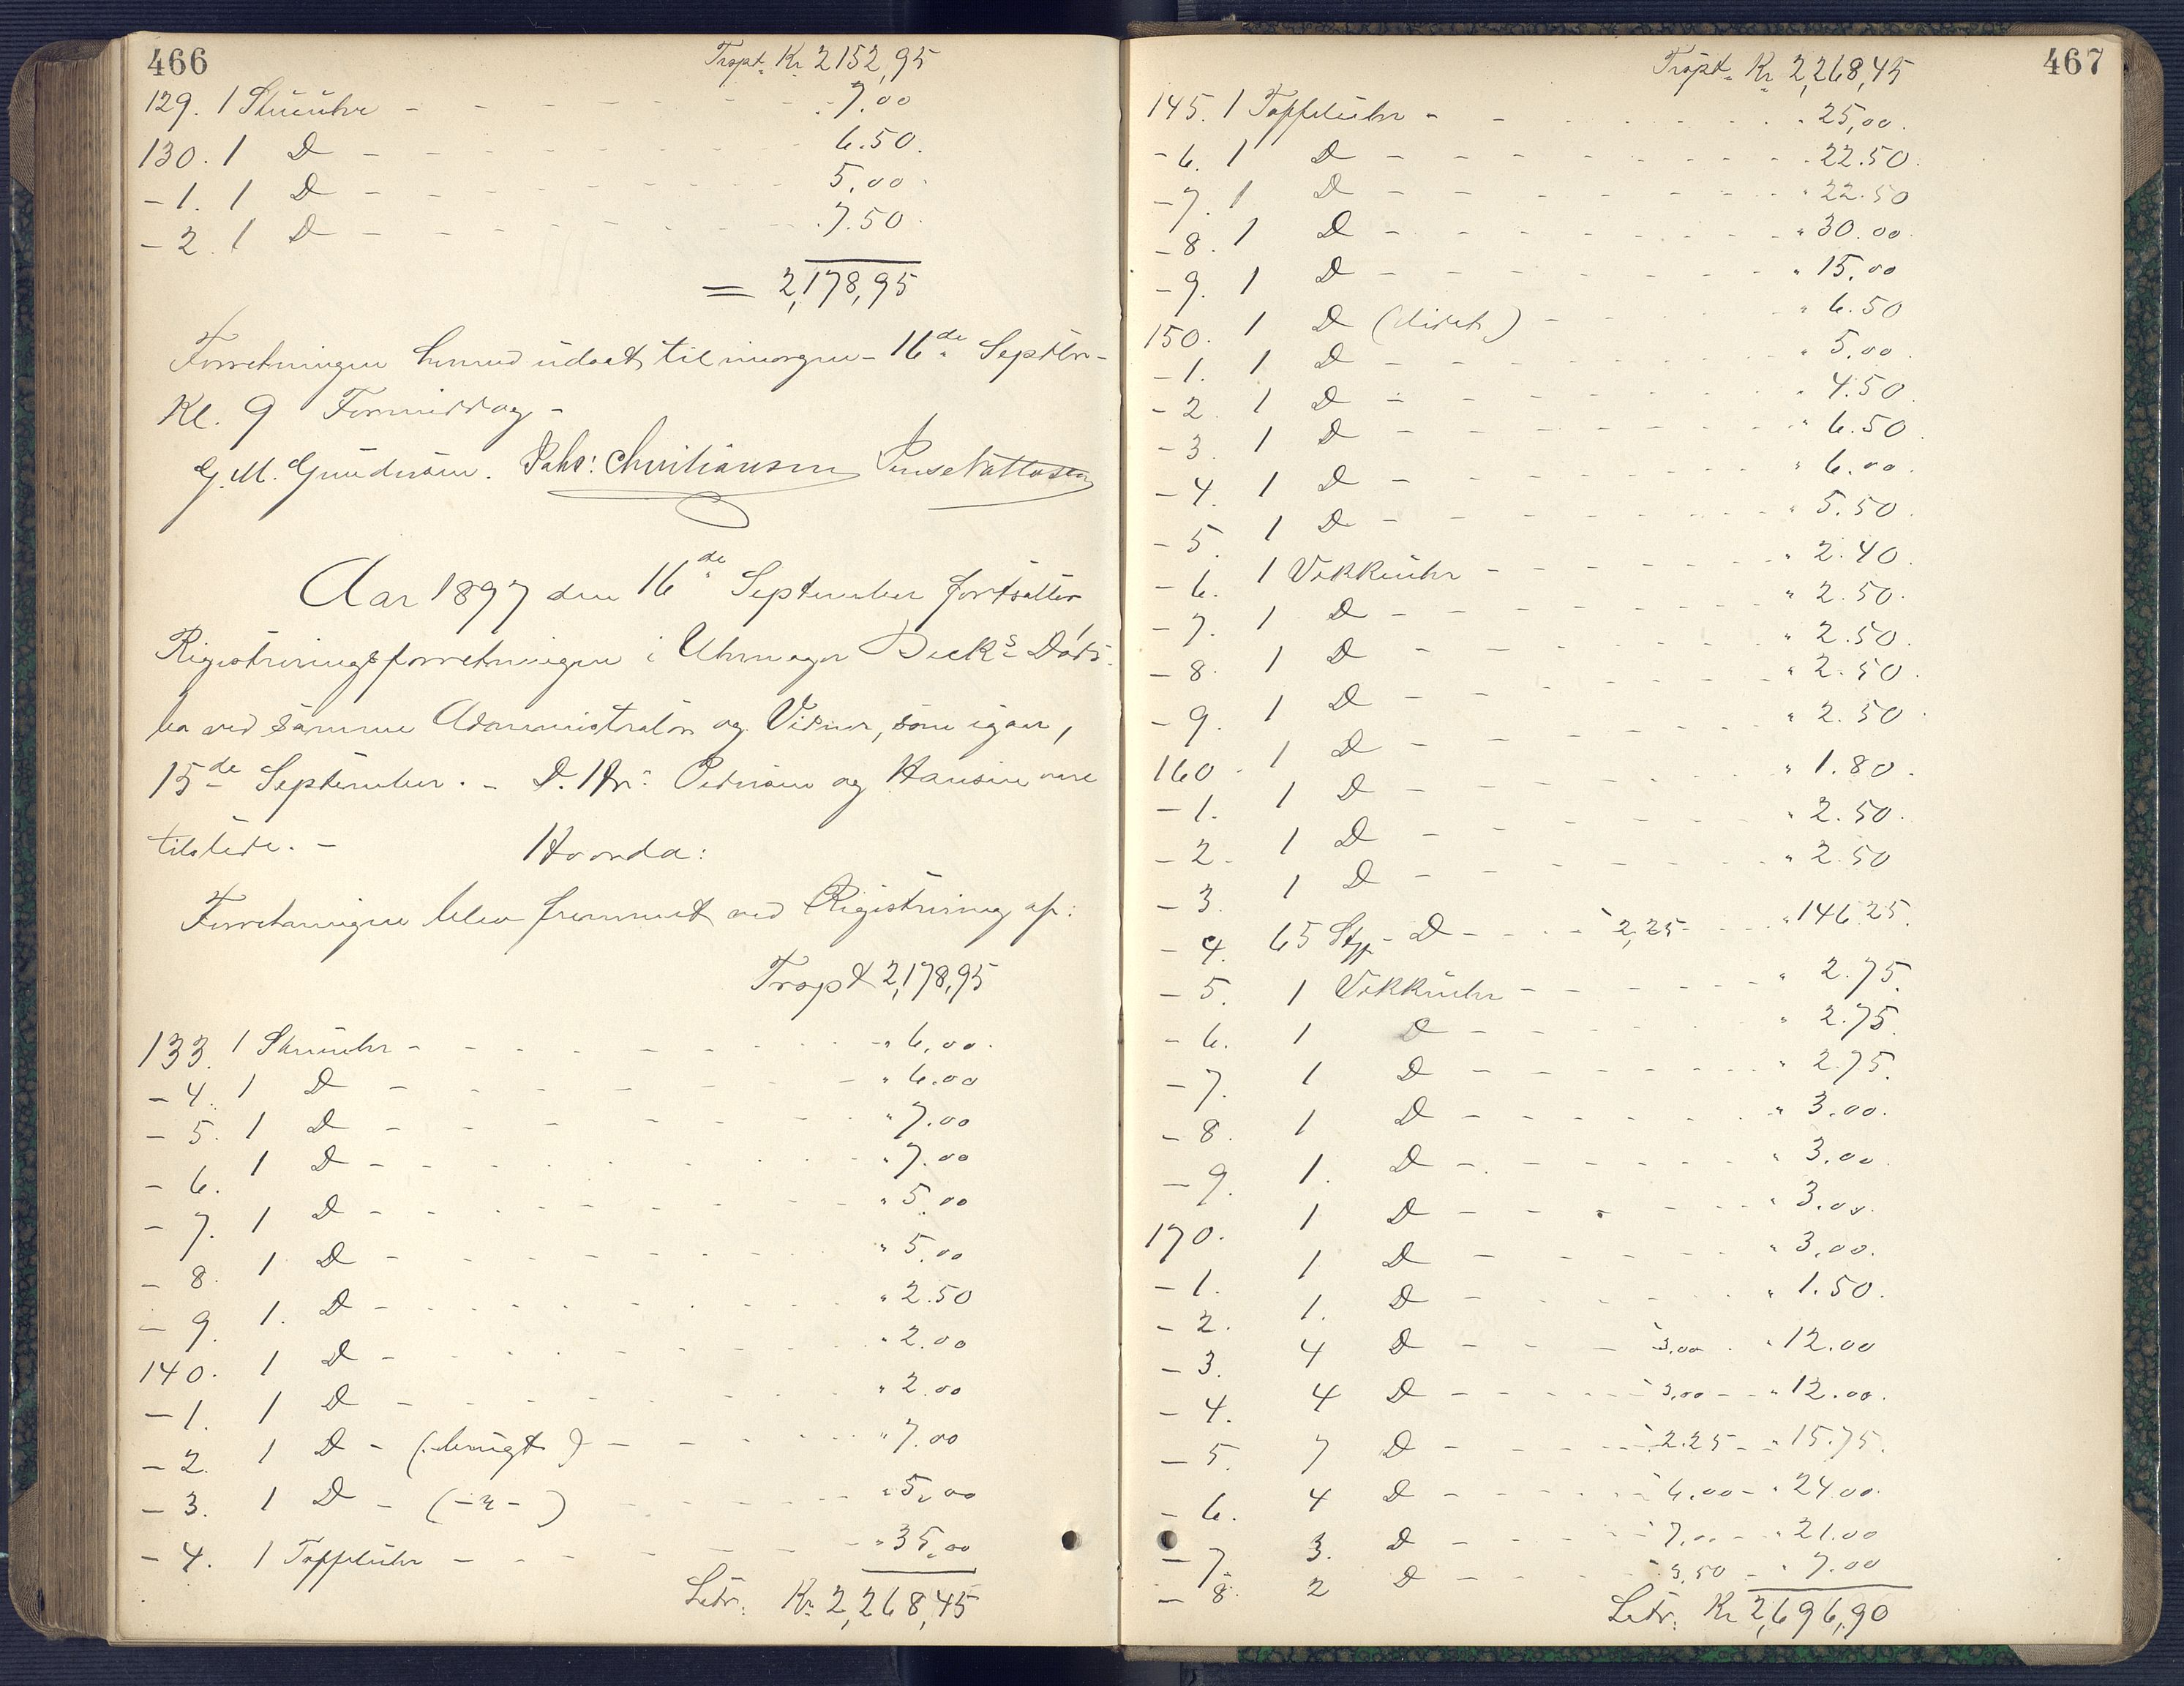 466
Trspt. Kr. 2152,95
129. 1 Stueuhr - - - - - 7.00
130. 1 D - - - - - 6.50.
- 1. 1 D - - - - - 5.00.
- 2. 1 D - - - - - 7.50.
= 2,178,95
Forretningen herved udsat til imorgen - 16de Septbr -
Kl. 9 Formiddag -
G. M. Gundersen. Christiansen
Aar 1897 den 16de September fortsattes
Registreringsforretningen i Uhrmager Becks Døds-
bo ved samme Administrator og Vidner, som igaar,
15de September. - D. Hrr: Pedersen og Hansen vare
tilstede. - Hvorda:
Forretningen blev fremmet ved Registrering af:
Trspt 2,178,95
133. 1 Stueuhr - - - - - " 6,00.
- 4. 1 D - - - - - " 6.00
- 5. 1 D - - - - - " 7.00
- 6. 1 D - - - - - " 7.00
- 7. 1 D - - - - - " 5.00
- 8. 1 D - - - - - " 5.00
- 9. 1. D - - - - - " 2.50
140. 1 D - - - - - " 2.00
- 1. 1 D - - - - - " 2.00
- 2. 1 D - (brugt) - - - - " 7.00
- 3. 1 D - ( - " - ) - - - - " 5,00
- 4. 1 Taffeluhr - - - - - " 35,00
Letr. Kr. 2,268,45
467
Trspt. Kr. 2,268,45
145. 1 Taffeluhr - - - - - " 25,00.
- 6. 1 D - - - - - " 22.50.
- 7. 1 D - - - - - " 22.50
- 8. 1 D - - - - - " 30.00
- 9. 1 D - - - - - " 15,00
150. 1 D (defekt) - - - - " 6.50
- 1. 1 D - - - - - " 5,00.
- 2. 1 D - - - - - " 4.50
- 3. 1 D - - - - - " 6.50
- 4. 1 D - - - - - " 6.00.
- 5. 1 D - - - - - " 5.50.
- 6. 1 Vækkeuhr - - - - - " 2.40.
- 7. 1 D - - - - - " 2.50.
- 8. 1 D - - - - - " 2.50.
- 9. 1 D - - - - - " 2.50.
160. 1 D - - - - - " 2.50
- 1. 1 D - - - - - " 1.80.
- 2. 1 D - - - - - " 2.50.
- 3. 1 D - - - - - " 2.50
- 4. 65 Stk - D - - - - à 2,25 - - - " 146.25.
- 5. 1 Vækkeuhr - - - - - " 2.75.
- 6. 1 D - - - - - " 2.75.
- 7. 1 D - - - - - " 2.75.
- 8. 1 D - - - - - " 3.00.
- 9. 1. D - - - - - " 3.00.
170. 1 D - - - - - " 3.00.
- 1. 1 D - - - - - " 3,00.
- 2. 1. D - - - - - " 1.50.
- 3. 4 D - - - à 3,00 - " 12.00
- 4. 4 D - - - à 3,00 - " 12.00.
- 5. 7 D - - - à 2.25 - " 15.75.
- 6. 4 D - - - à 6.00 - " 24.00.
- 7. 3. D - - - à 7,00 - " 21.00
- 8. 2 D - - - à 3,50 - " 7.00
Letr. Kr 2,696,90